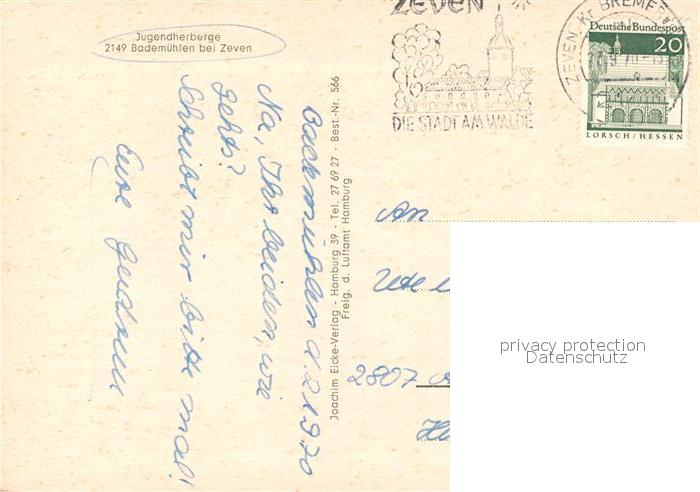 Jugendherberge
2149 Bademühlen bei Zeven
ZEVEN
DIE STADT AM WALDE
ZEVEN, Kr. BREMERV
Deutsche Bundespost
20
LORSCH/HESSEN
Joachim Eicke-Verlag - Hamburg 39 - Tel. 27 69 27 - Best.-Nr. 566
Freig. d. Luftamt Hamburg
Bademühlen d. 2 1970
Na, Ihr beiden, wie
gehts?
Schreibt mir bitte mal!
Eure Gudrun
An
2807
privacy protection
Datenschutz